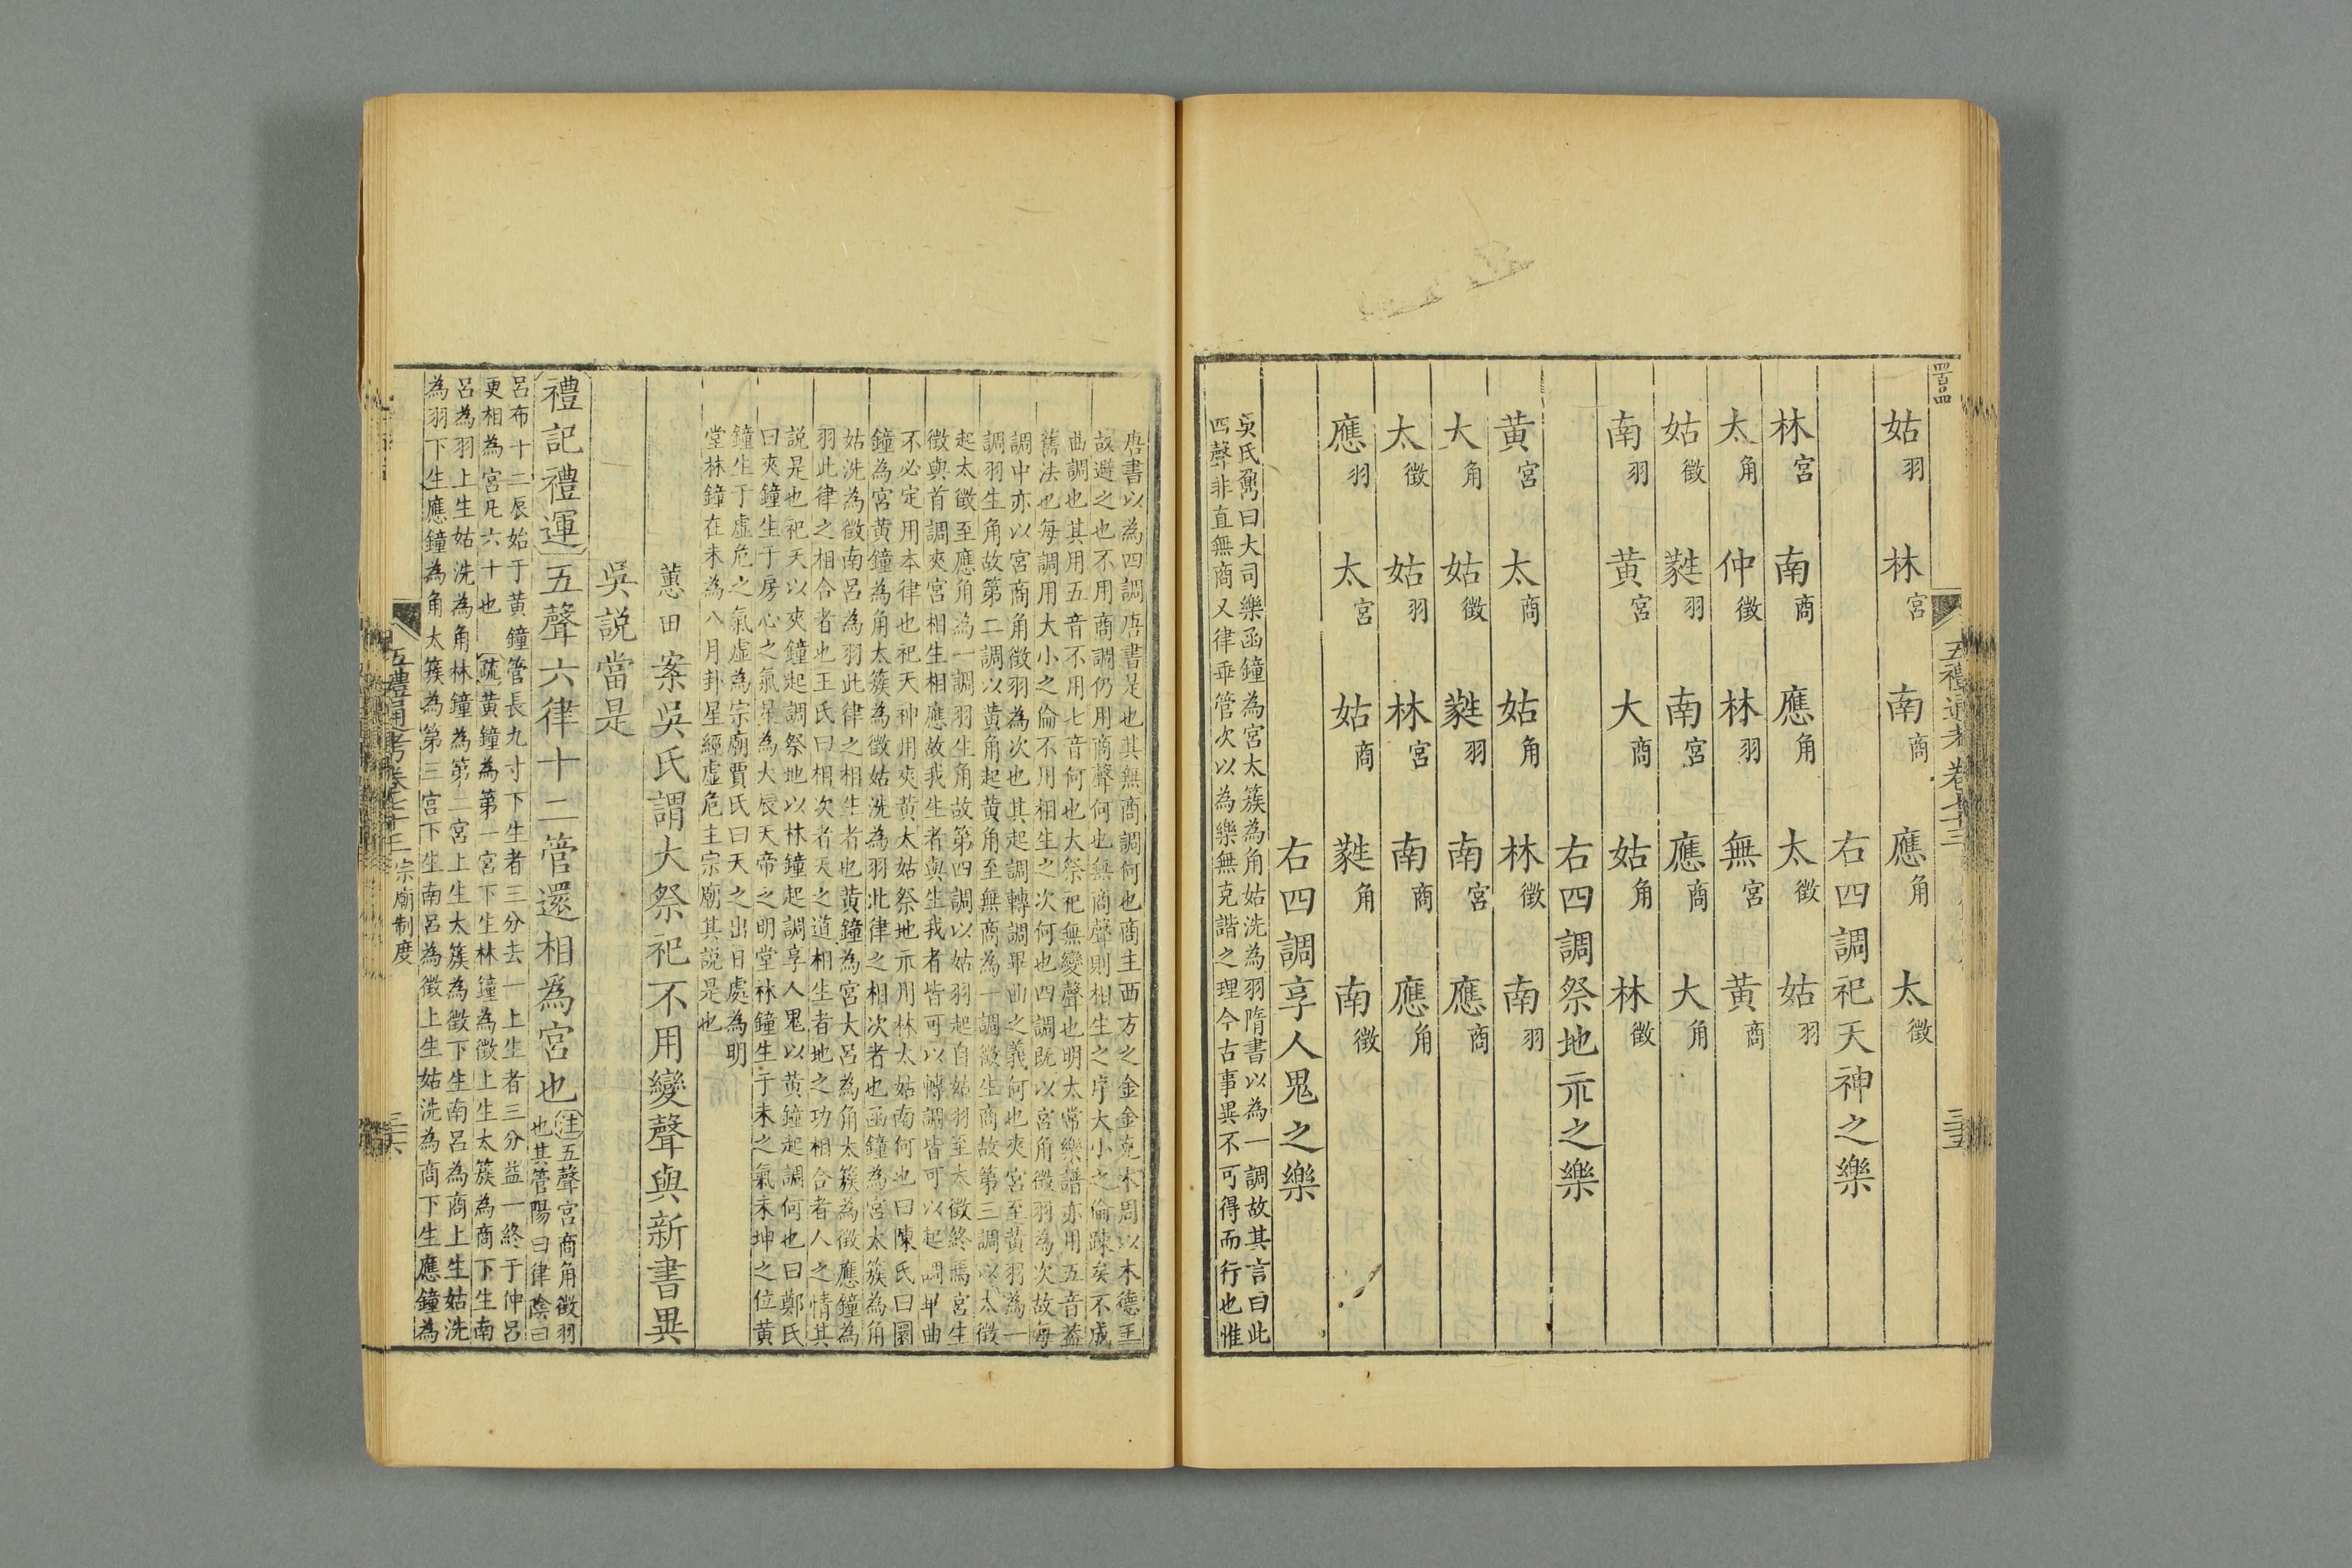 五禮通考卷七十三
三十五
姑羽 林宮 南商 應角 太徵
右四調祀天神之樂
林宮 南商 應角 太徵 姑羽
太角 仲徵 林羽 無宮 黃商
姑徵 蕤羽 南宮 應商 大角
南羽 黃宮 大商 姑角 林徵
右四調祭地示之樂
黃宮 太商 姑角 林徵 南羽
大角 姑徵 蕤羽 南宮 應商
太徵 姑羽 林宮 南商 應角
應羽 太宮 姑商 蕤角 南徵
右四調享人鬼之樂
吳氏鼐曰大司樂函鐘為宮太簇為角姑洗為羽隋書以為一調故其言曰此
四聲非直無商又律乖管次以為樂無克諧之理今古事異不可得而行也惟
唐書以為四調唐書是也其無商調何也商主西方之金金克木周以木德王
故避之也不用商調仍用商聲何也無商聲則相生之序大小之倫踈矣不成
曲調也其用五音不用七音何也大祭祀無變聲也明太常樂譜亦用五音蓋
舊法也每調用大小之倫不用相生之次何也四調旣以宮角徵羽為次故每
調中亦以宮商角徵羽為次也其起調轉調畢曲之義何也夾宮至黃羽為一
調羽生角故第二調以黃角起黃角至無商為一調徵生商故第三調以太徵
起太徵至應角為一調羽生角故第四調以姑羽起自姑羽至太徵終焉宮生
徵與首調夾宮相生相應故我生者與生我者皆可以轉調皆可以起調畢曲
不必定用本律也祀天神用夾黃大姑祭地示用林太姑南何也曰陳氏曰圜
鐘為宮黃鐘為角太簇為徵姑洗為羽此律之相次者也函鐘為宮太簇為角
姑洗為徵南呂為羽此律之相生者也黃鐘為宮大呂為角太簇為徵應鐘為
羽此律之相合者也王氏曰相次者天之道相生者地之功相合者人之情其
說是也祀天以夾鐘起調祭地以林鐘起調享人鬼以黃鐘起調何也曰鄭氏
曰夾鐘生于房心之氣房心為大辰天帝之明堂林鐘生于未之氣未坤之位黃
鐘生于虛危之氣虛為宗廟賈氏曰天之出日處為明
堂林鐘在未為八月卦星經虛危主宗廟其說是也
蕙田案吳氏謂大祭祀不用變聲與新書異
吳說當是
禮記禮運五聲六律十二管還相為宮也注五聲宮商角徵羽
也其管陽曰律陰曰
呂布十二辰始于黃鐘管長九寸下生者三分去一上生者三分益一終于仲呂
更相為宮凡六十也疏黃鐘為第一宮下生林鐘為徵上生太簇為商下生南
呂為羽上生姑洗為角林鐘為第二宮上生太簇為徵下生南呂為商上生姑洗
為羽下生應鐘為角太簇為第三宮下生南呂為徵上生姑洗為商下生應鐘為
五禮通考卷七十三 宗廟制度
三十六